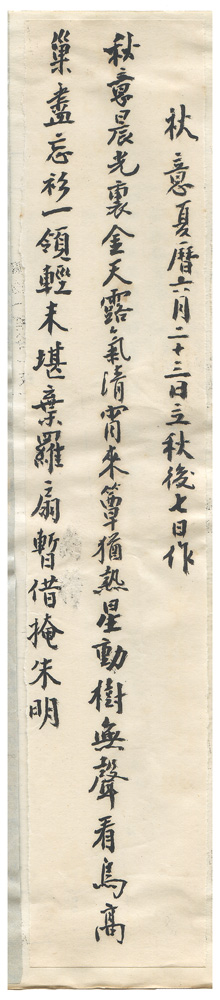 秋意夏曆六月二十三日立秋後七日作
秋意晨光裏金天露氣清宵來簟猶熱星動樹無聲看烏高
巢盡忘衫一領輕未堪棄羅扇暫借掩朱明